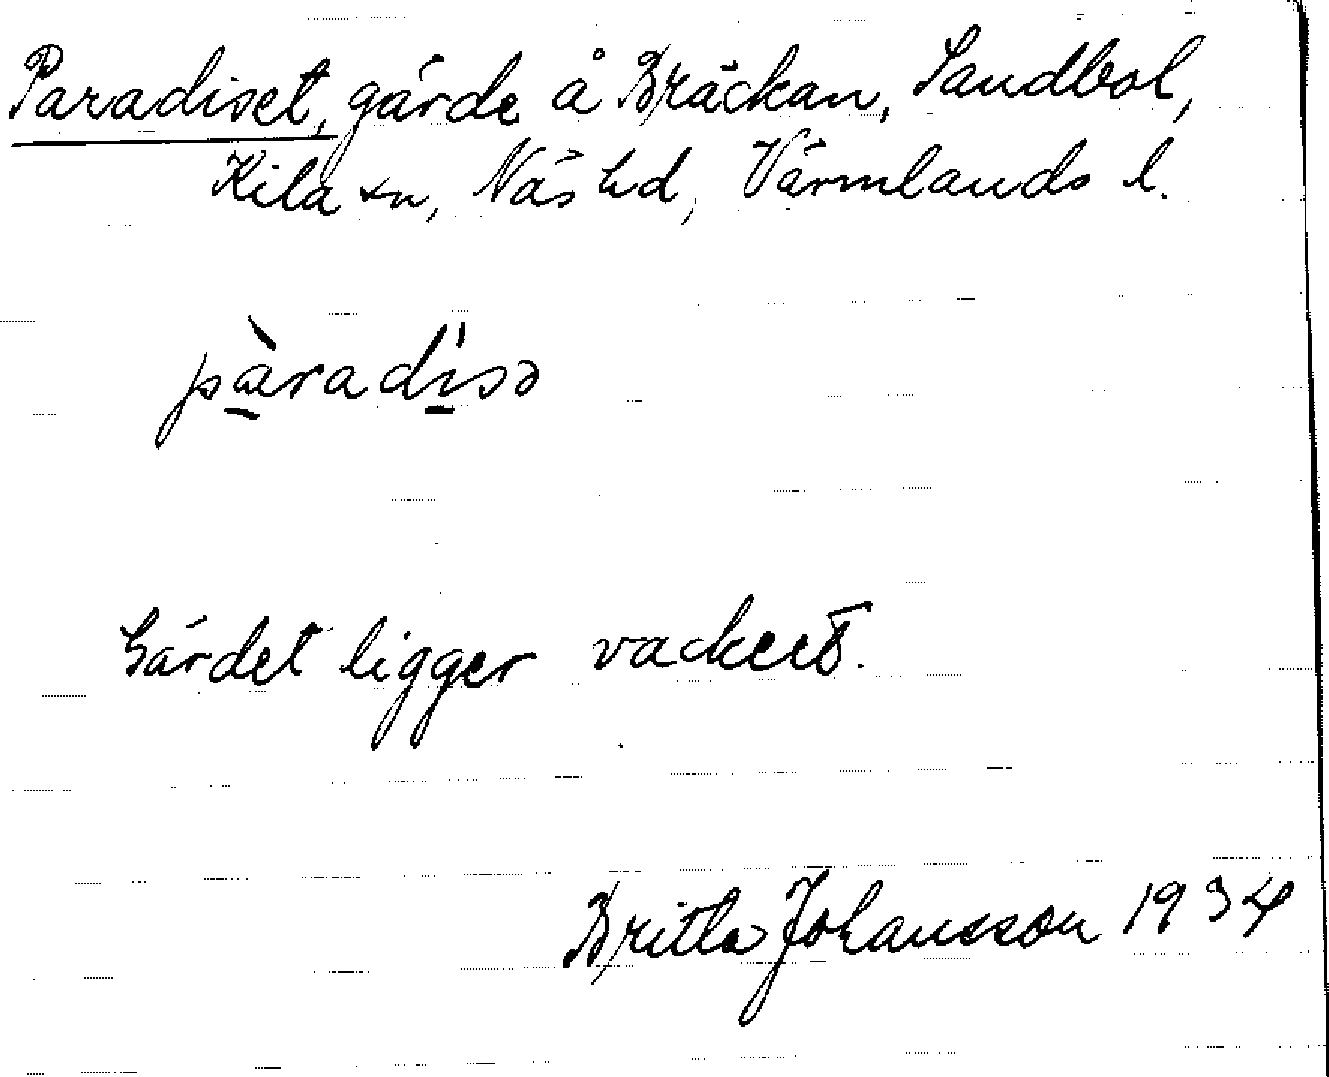 Paradiset, gärde å Bräckan, Sandbol,
Kila sn, Näs hd, Värmlands l.
pàradi̱sə
Gärdet ligger vackert.
Britta Johansson 1934